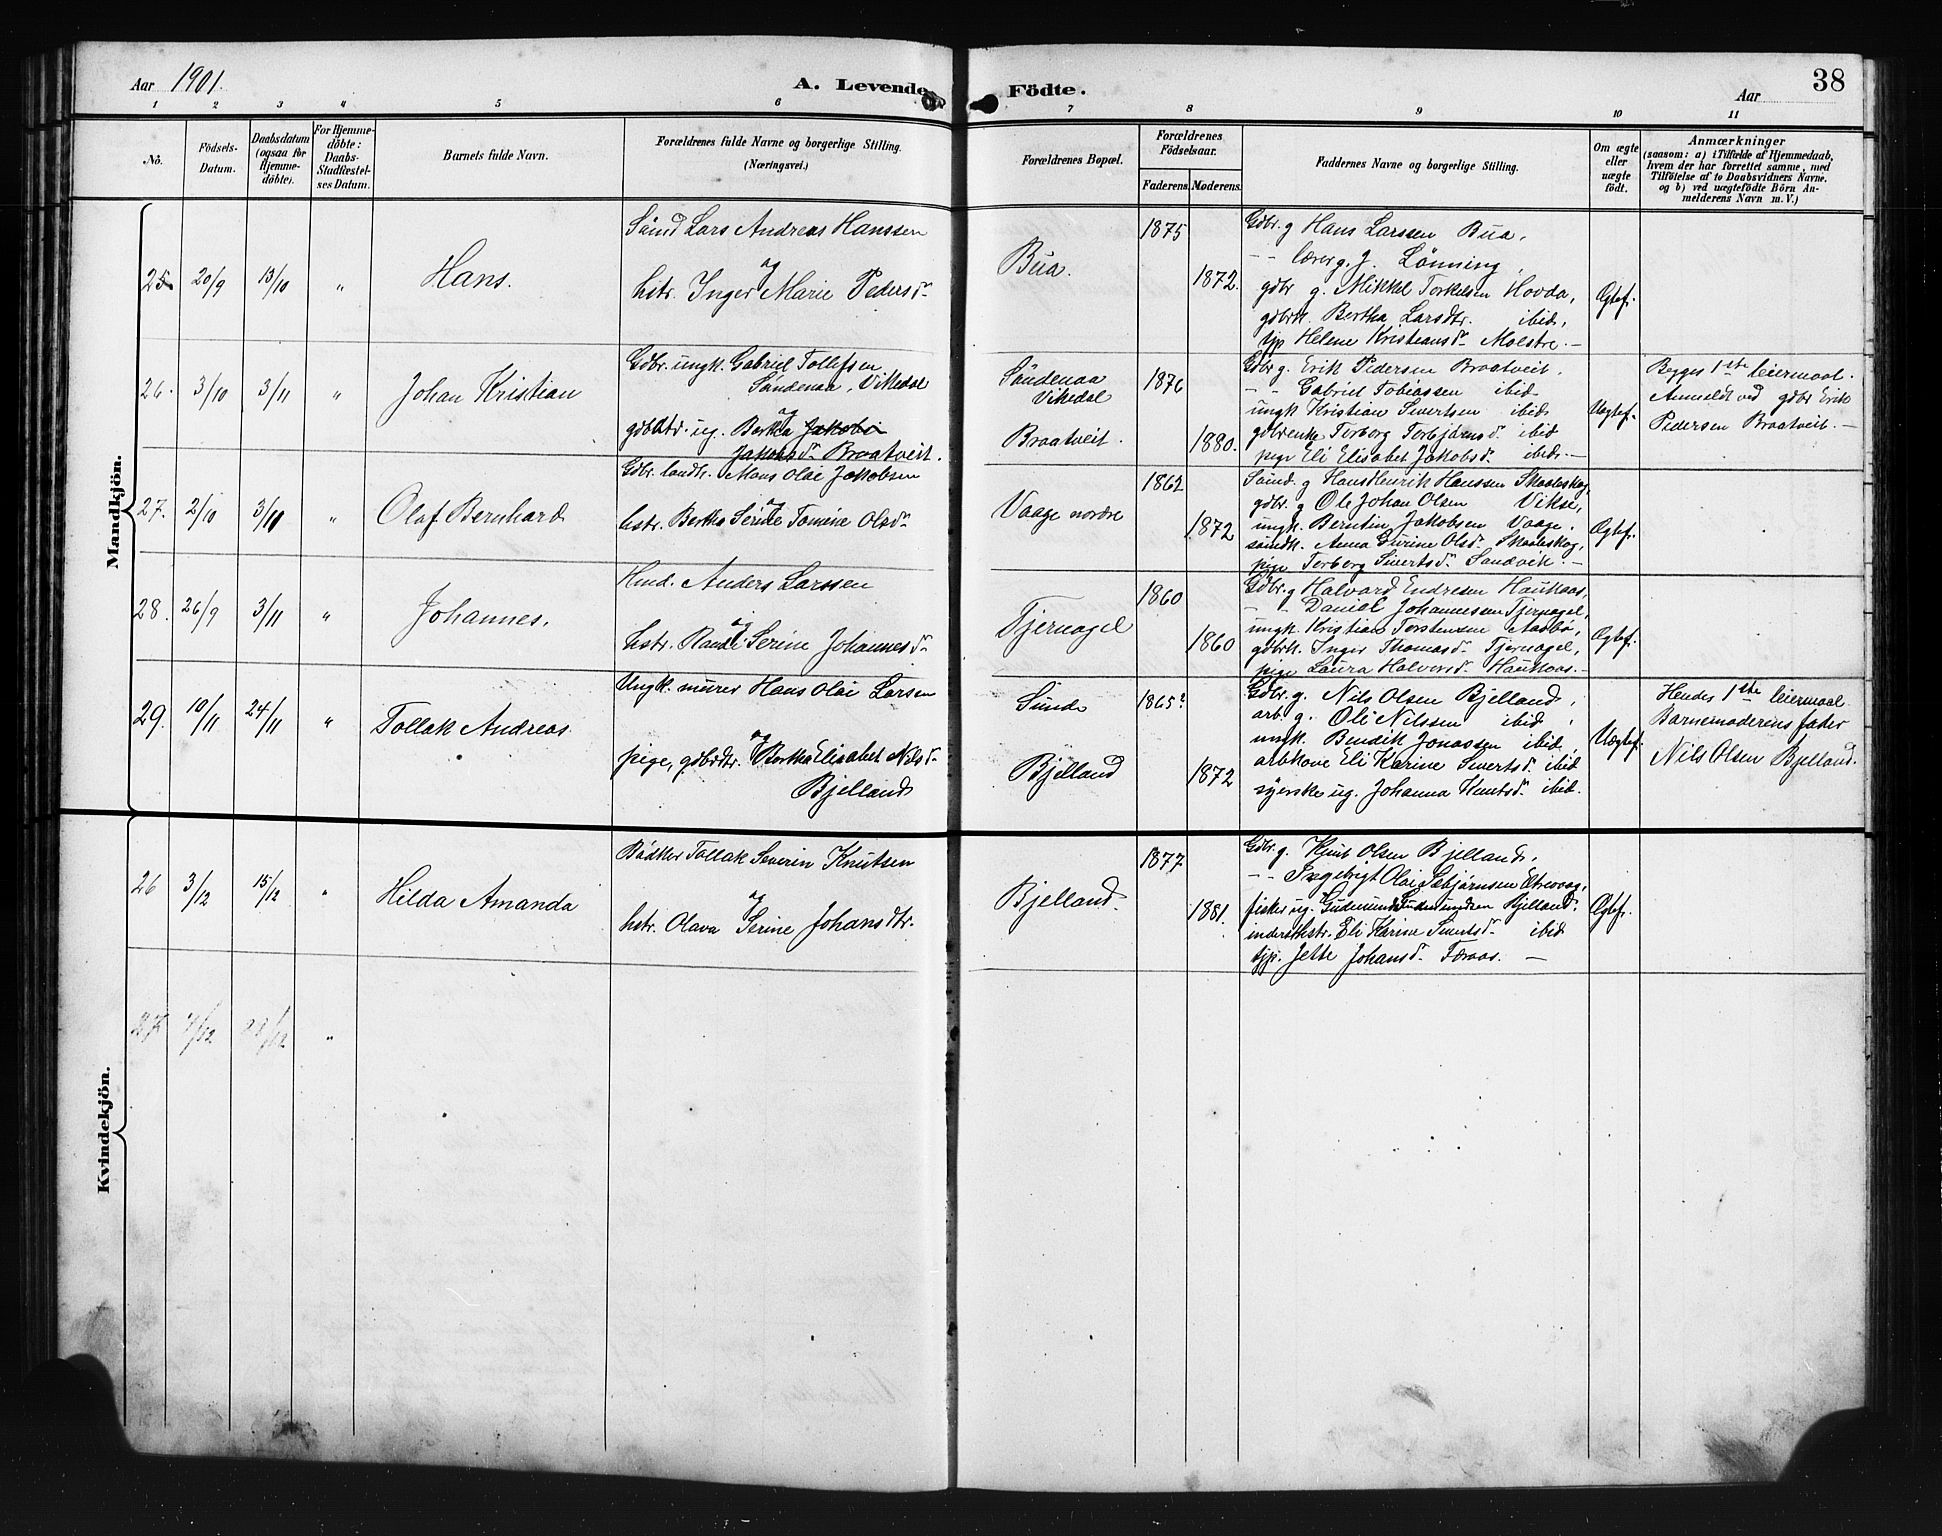 Aar 1901.
A. Levende Födte.
Aar
38
1 2 3 4 5 6 7 8 9 10 11
No.
Födsels-
Datum.
Daabsdatum
(ogsaa for
Hjemme-
döbte).
For Hjemme-
döbte:
Daabs-
Stadfæstel-
ses Datum.
Barnets fulde Navn.
Forældrenes fulde Navne og borgerlige Stilling.
(Næringsvei.)
Forældrenes Bopæl.
Forældrenes
Födselsaar.
Faderens. Moderens.
Faddernes Navne og borgerlige Stilling.
Om ægte
eller
uægte
födt.
Anmærkninger
(saasom: a) i Tilfælde af Hjemmedaab,
hvem der har forrettet samme, med
Tilföielse af to Daabsvidners Navne.
og b) ved uægtefödte Börn An-
melderens Navn m. V.)
Mandkjön.
25 20/9 13/10 "
Hans.
Lars Andreas Hanssen
og
hstr. Inger Marie Pedersd.
Bua.
1875
1872.
Gdbr. g Hans Larssen Bua,
- - lærer g. J. Lønning,
gdbr g. Mikkel Torkelsen Hovda,
gdbrk. Bertha Larsdtr. ibid,
tjp Helene Kristiansd. Molstre.
Ægtef.
26. 3/10 3/11 "
Johan Kristian
Gdbr. ungk. Gabriel Tollefsen
Söndenaa, Vikedal
og
gdbdtr. ug. Bertha Jakobs
Jakobsd. Braatveit.
Söndenaa
Vikedal
Braatveit.
1876
1880.
Gdbr g. Erik Pedersen Braatveit,
- - Gabriel Tobiassen ibid
ungk Kristian Sivertsen ibid
gdbrenke Torborg Torbjörnsd. ibid
pige Eli Elisabet Jakobsd. ibid.
Uægtef.
Begges 1ste leiermaal.
Anmeldt ved gdbr Erik
Pedersen Braatveit.
27. 2/10 3/11 "
Olaf Bernhard
Gdbr. landh. Mons Olai Jakobsen
og
hstr. Bertha Serine Tomine Olsd.
Vaage nordre
1862
1872
g Hans Henrik Hanssen Skaaleskog,
gdbr. g Ole Johan Olsen Vikse,
ungk. Berntin Jakobsen Vaage.
Anna Gurine Olsd. Skaaleskog,
pige Torborg Sivertsd. Sandvik.
Ægtef.
28. 26/9 3/11 "
Johannes.
Hmd. Anders Larssen
og
hstr. Randi Serine Johannesd.
Tjernagel
1860
1860
Gdbr. g Halvard Endresen Haukaas,
- - Daniel Johannesen Tjernagel,
ungk. Kristian Torstensen Aadbö,
gdbrk. Inger Thomasd. Tjernagel,
pige Laura Halvorsd. Haukaas.
Ægtef.
29. 10/11 24/11 "
Tollak Andreas
Ungk. murer Hans Olai Larsen
og
pige, gdbrdtr. Bertha Elisabet Nilsd.
Bjelland
Sunde
Bjelland
1865?
1872
Gdbr. g. Nils Olsen Bjelland,
arb g. Ole Nilssen ibid,
ungk. Bendik Jonassen ibid,
arbkone Eli Karine Sivertsd. ibid
syerske ug. Johanna Knutsd. ibid.
Uægtef.
Hendes 1ste leiermaal.
Barnemoderens fader
Nils Olsen Bjelland.
Kvindekjön.
26 3/12 15/12 "
Hilda Amanda
Bödker Tollak Severin Knutsen
og
hstr. Olava Serine Johansdtr.
Bjelland.
1877
1881.
Gdbr. g. Knut Olsen Bjelland,
- - Ingebrigt Olai Asbjørnsen Eltrevaag,
fisker ug. Gudmund Gudmundsen Bjelland.
Eli Karine Sivertsd. ibid
tjp. Jette Johansd. Færaas.
Ægtef.
27 /12 /12 "